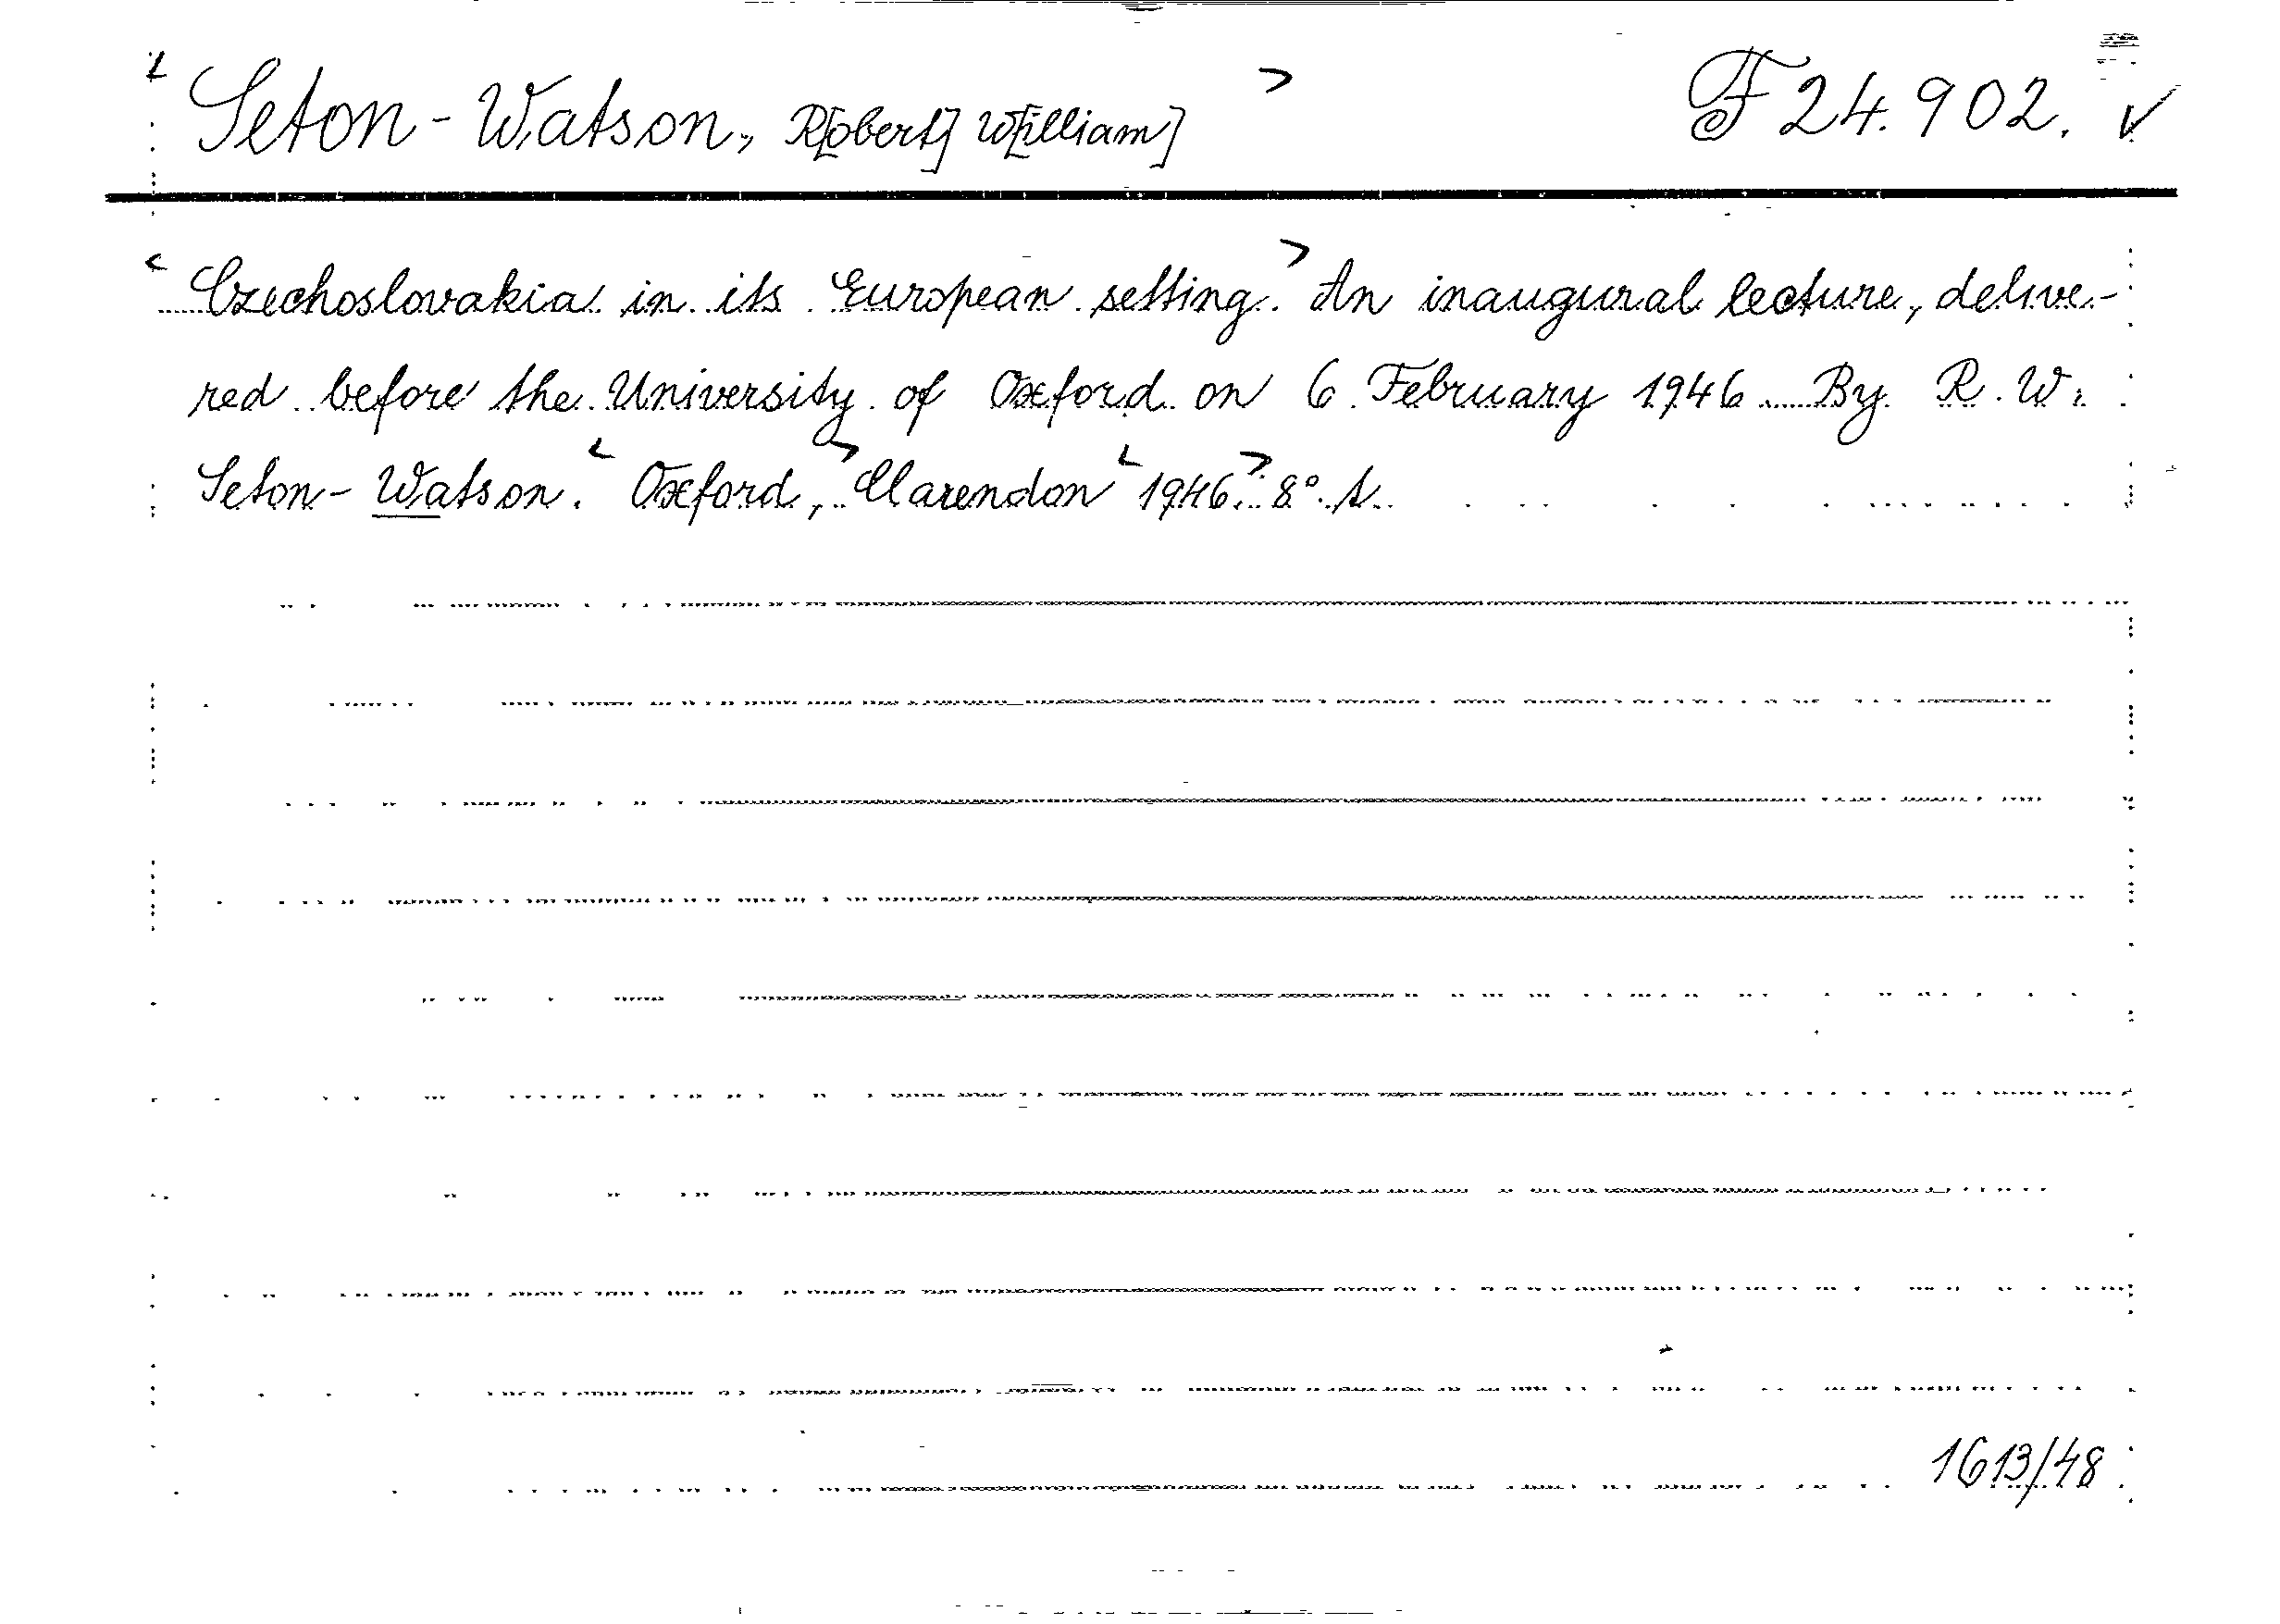 < Seton-Watson, R[obert] W[illiam] > F 24.902. ✓
< Czechoslovakia in its European setting. > An inaugural lecture, delive-
red before the University of Oxford on 6 February 1946. By R. W.
Seton-Watson. < Oxford, > Clarendon < 1946. > 8°. A.
1613/48